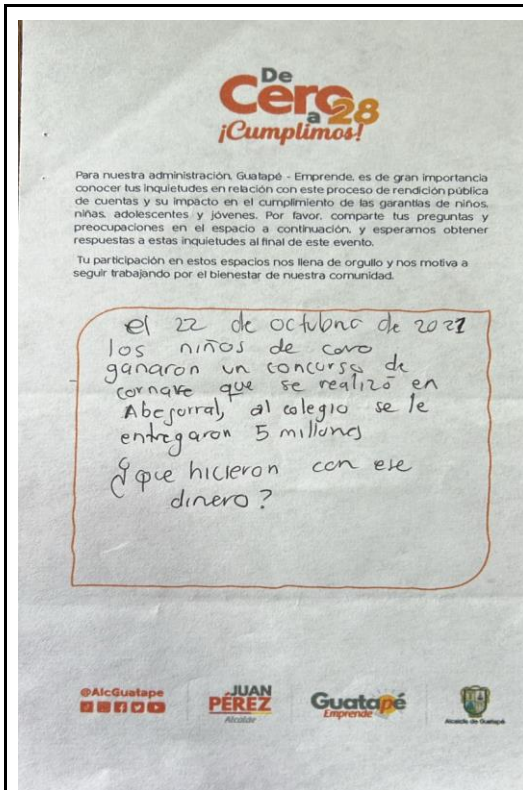 De
Cero
a 28
¡Cumplimos!
Para nuestra administración, Guatapé - Emprende, es de gran importancia
conocer tus inquietudes en relación con este proceso de rendición pública
de cuentas y su impacto en el cumplimiento de las garantías de niños,
niñas, adolescentes y jóvenes. Por favor, comparte tus preguntas y
preocupaciones en el espacio a continuación, y esperamos obtener
respuestas a estas inquietudes al final de este evento.
Tu participación en estos espacios nos llena de orgullo y nos motiva a
seguir trabajando por el bienestar de nuestra comunidad.
el 22 de octubre de 2021
los niños de coro
ganaron un concurso de
cornare que se realizó en
Abejorral, al colegio se le
entregaron 5 millones
¿que hicieron con ese
dinero?
@AlcGuatape
JUAN
PÉREZ
Alcalde
Guatapé
Emprende
Alcaldía de Guatapé